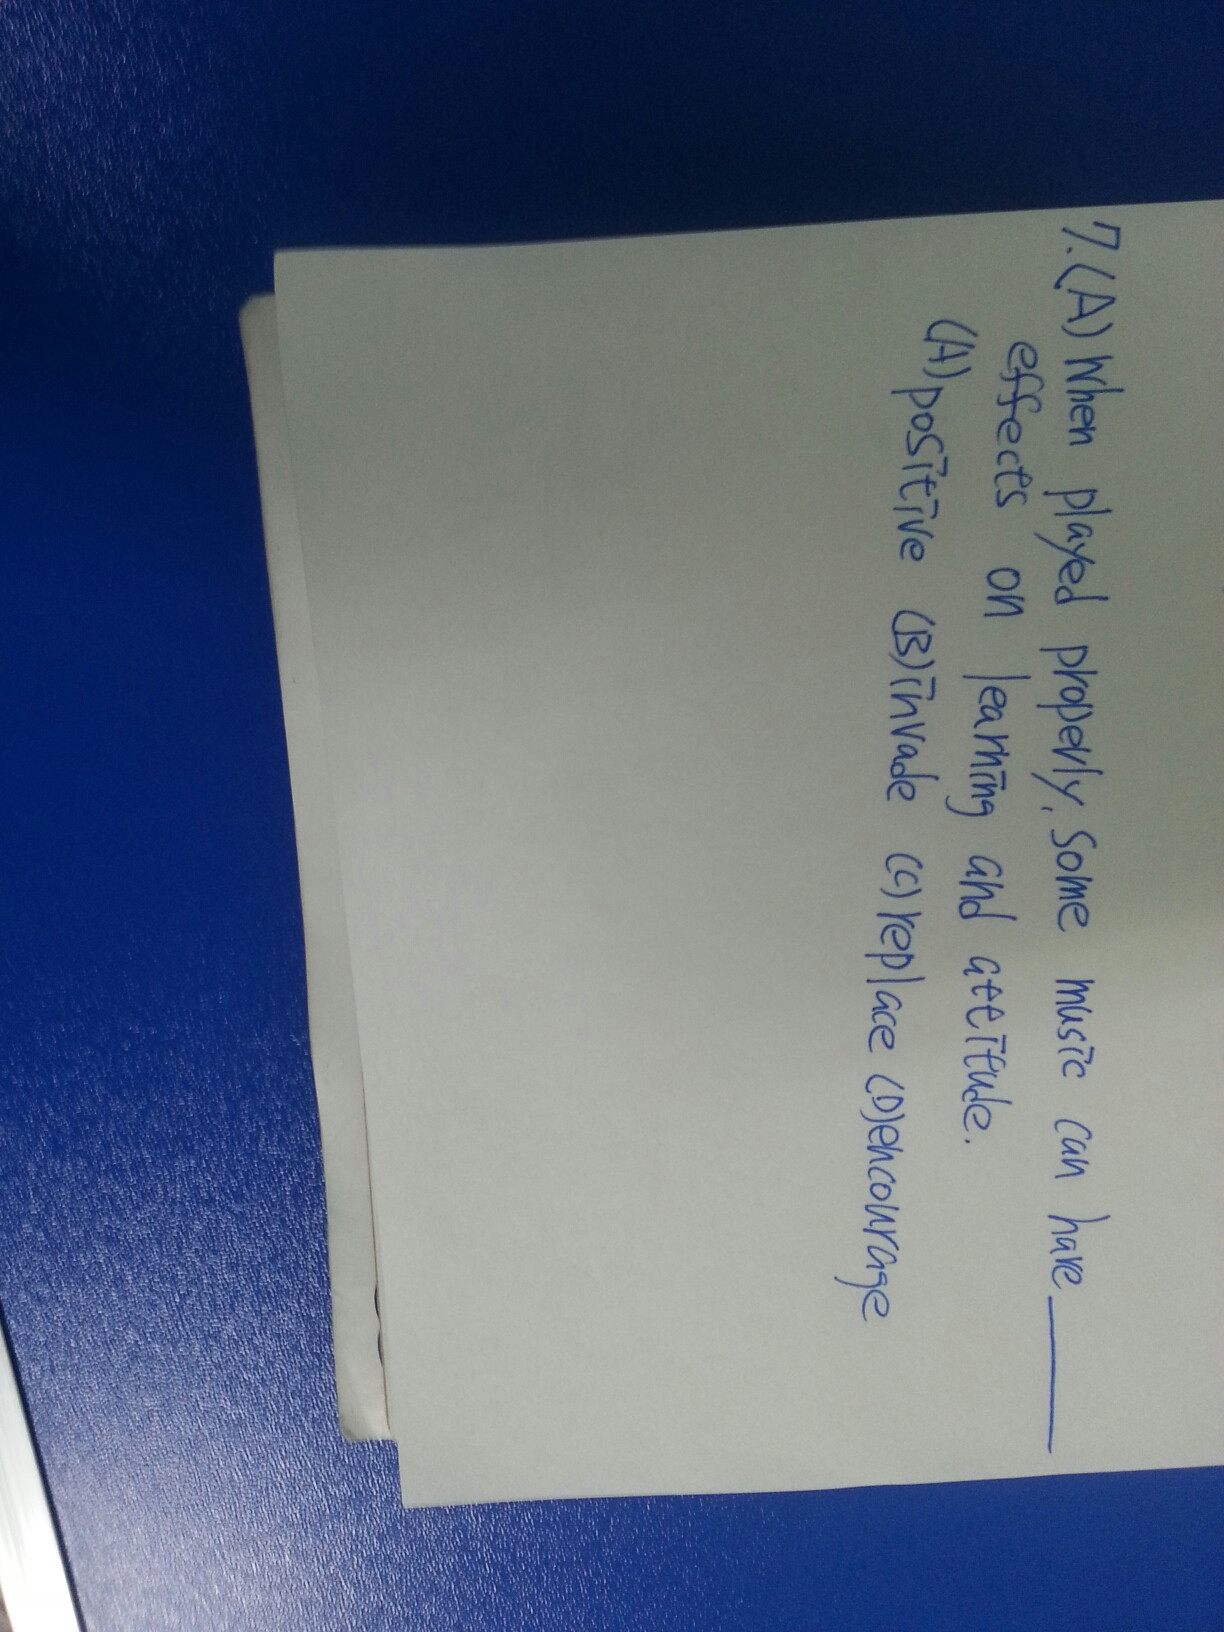 7.(A) When played properly, some music can have______
effects on learning and attitude.
(A)positive (B)invade (C)replace (D)encourage